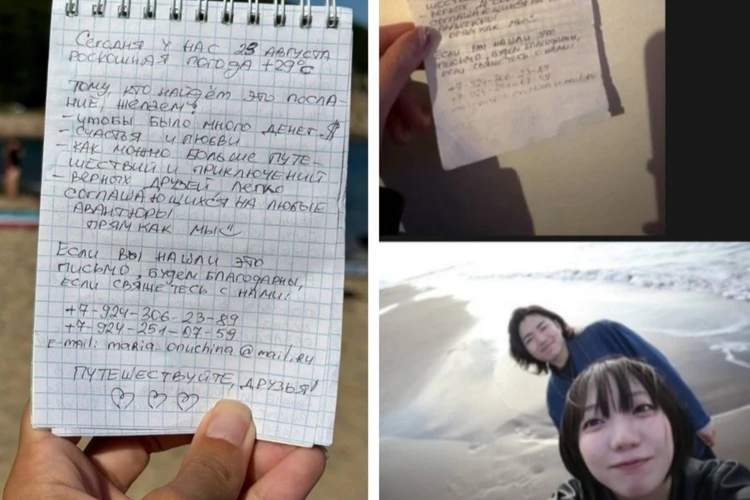 Сегодня у нас 23 августа
роскошная погода +29°С
Тому, кто найдём это посла-
ние, желаем:
- чтобы было много денег $
- счастья и любви
- как можно больше путе-
шествий и приключений
- верных друзей легко
соглашающихся на любые
авантюры
прям как мы
Если вы нашли это
письмо, будем благодарны,
если свяжетесь с нами!
+7-924-306-23-89
+7-924-251-07-59
e-mail: maria-onuchina@mail.ru
Путешествуйте, друзья!
шествий и
- верных
соглашающихся на
прям как мы
Если вы нашли это
письмо, будем благодарны,
если свяжетесь с нами!
+7-924-306-23-89